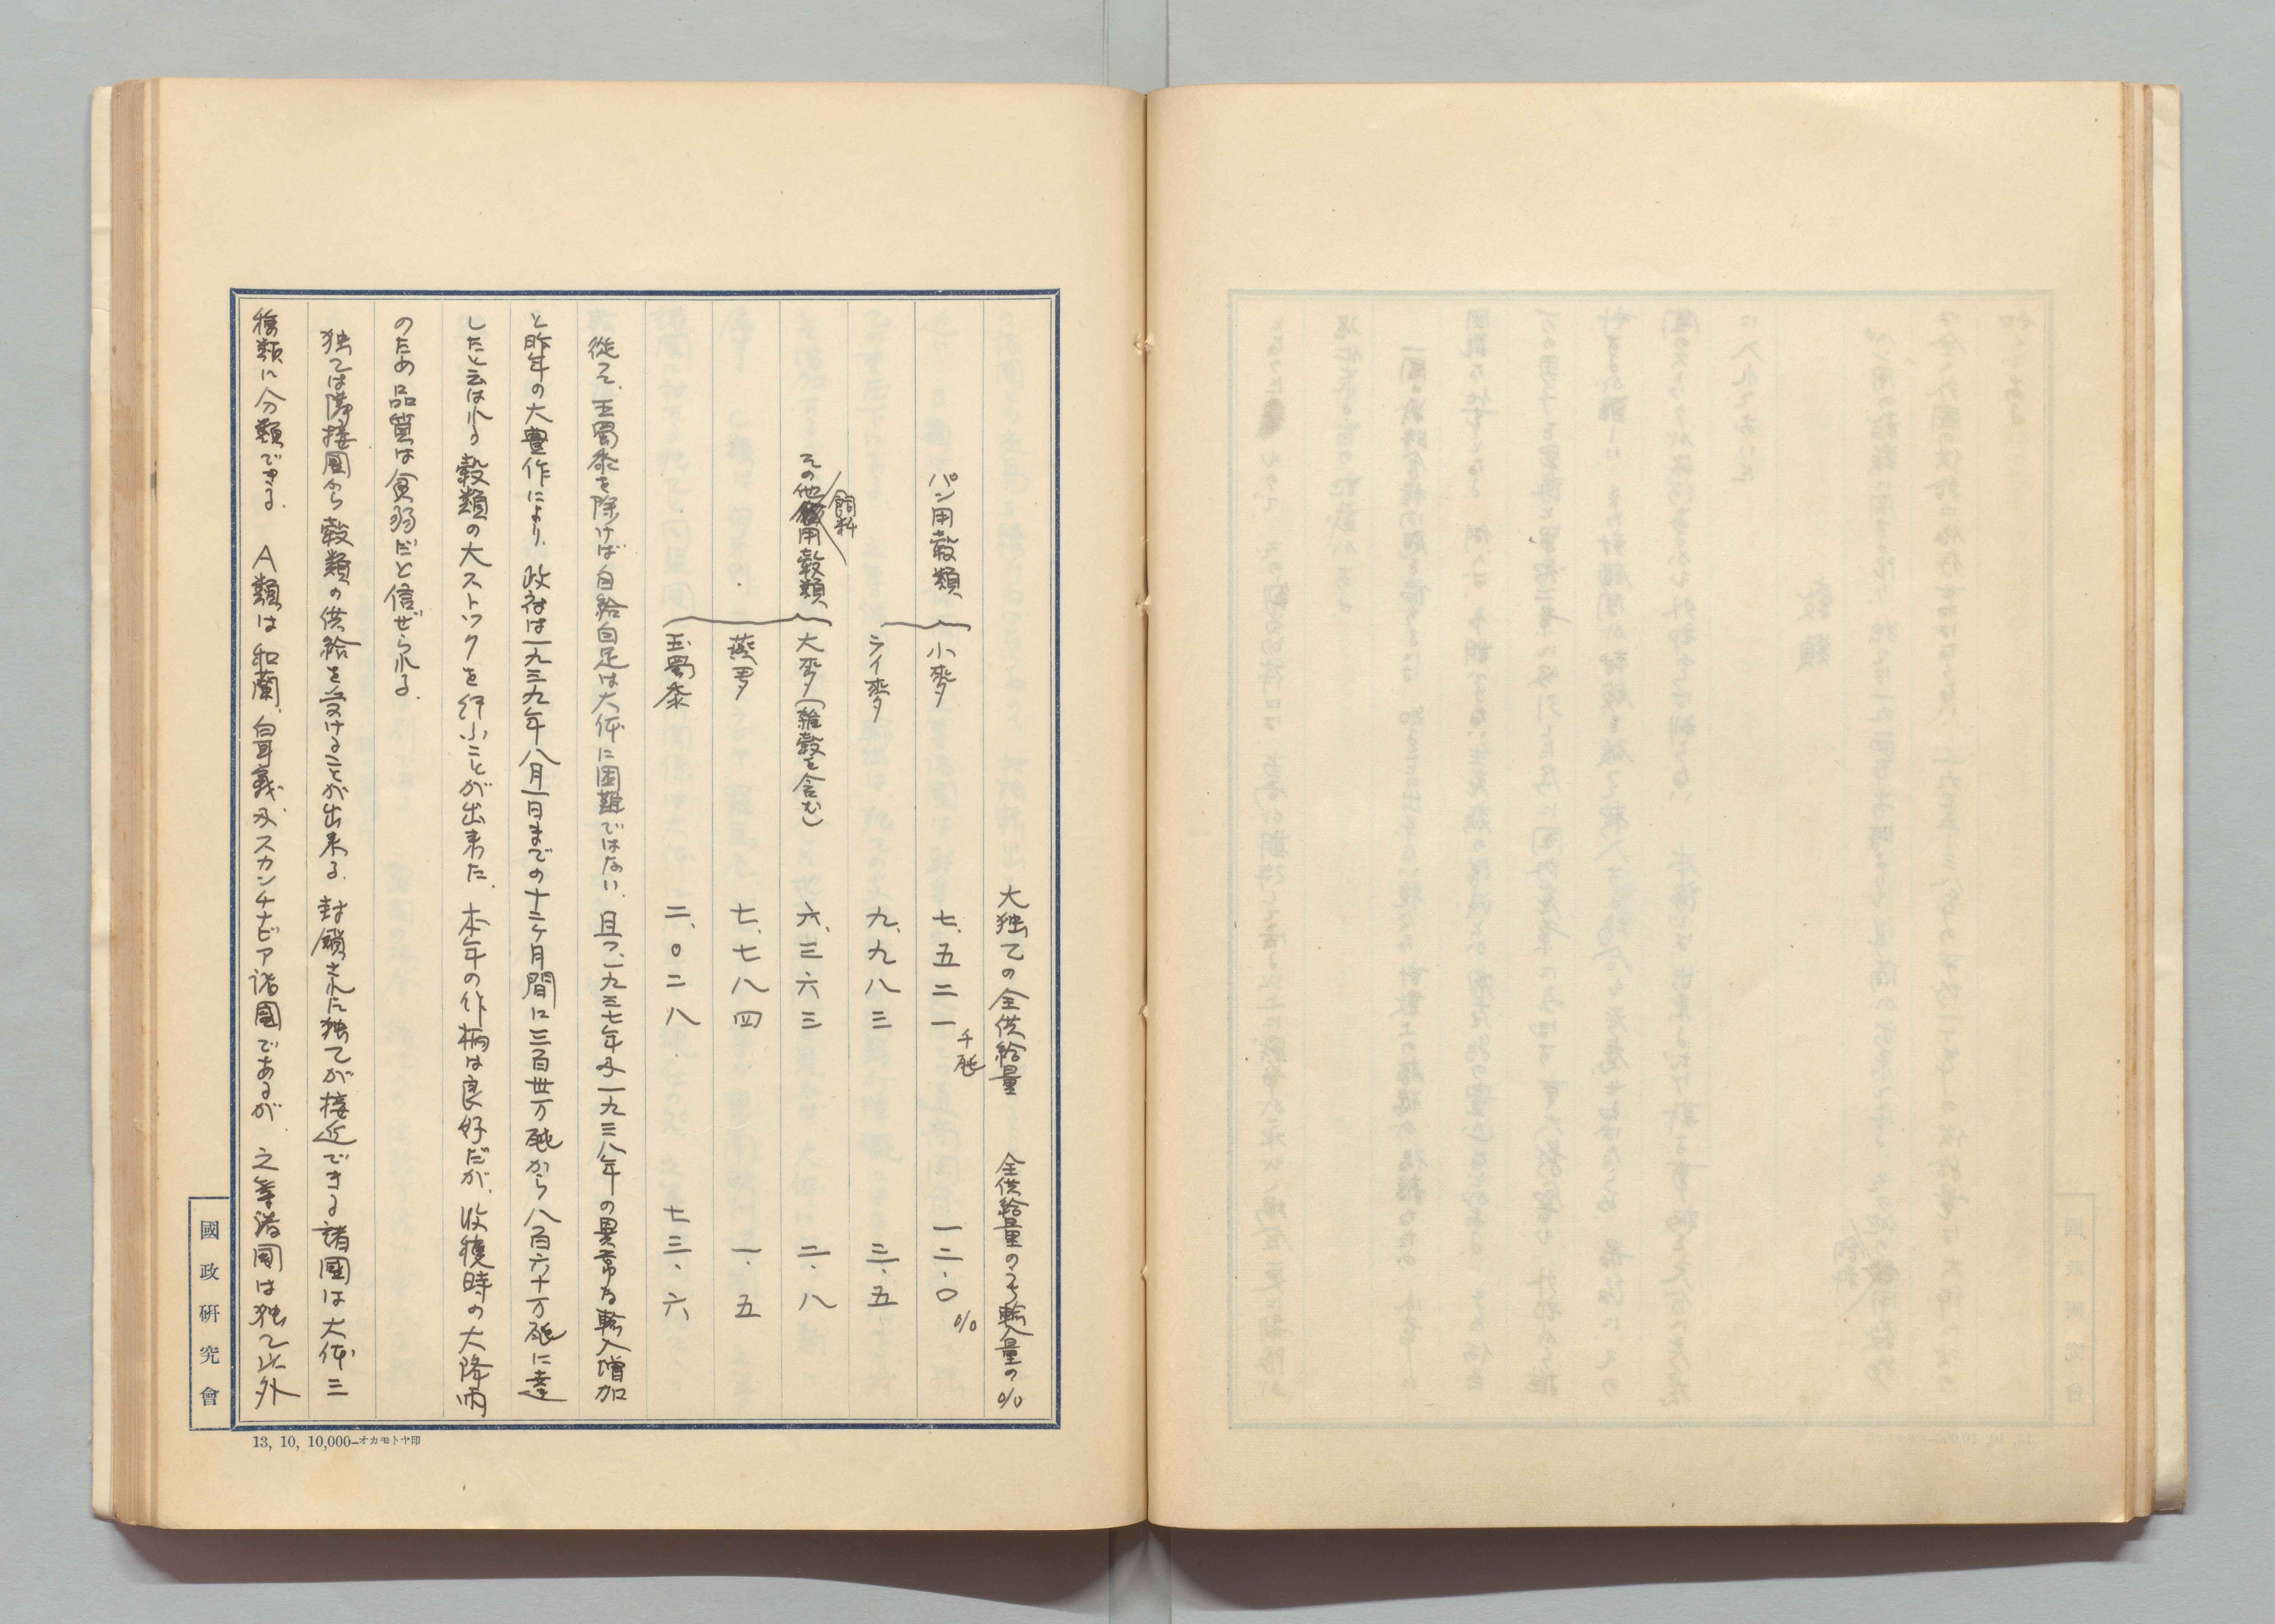 大独乙の全供給量　全供給量の内輸入量の%
パン用穀類　小麥　七、五二一千砘　一二・〇%
ライ麥　九、九八三　三・五
その他飼料用穀類　大麥（雑穀を含む）　六、三六三　二・八
燕麥　七、七八四　一・五
玉蜀黍　二、〇二八　七三・六
従て、玉蜀黍を除けば自給自足は大体に困難ではない、且つ、一九三七年及一九三八年の異常な輸入増加
と昨年の大豊作により、政府は一九三九年八月一日までの十二ヶ月間に三百卅万砘から八百六十万砘に達
したと云はれる穀類の大ストックを行ふことが出来た、本年の作柄は良好だが、收穫時の大降雨
のため品質は貧弱だと信ぜられる、
独乙は隣接國から穀類の供給を受けることが出来る、封鎖された独乙が接近できる諸國は大体三
種類に分類できる、A類は和蘭、白耳義及スカンヂナビア諸國であるが、之等諸國は独乙以外
國政研究會
13, 10, 10,000—オカモトヤ印